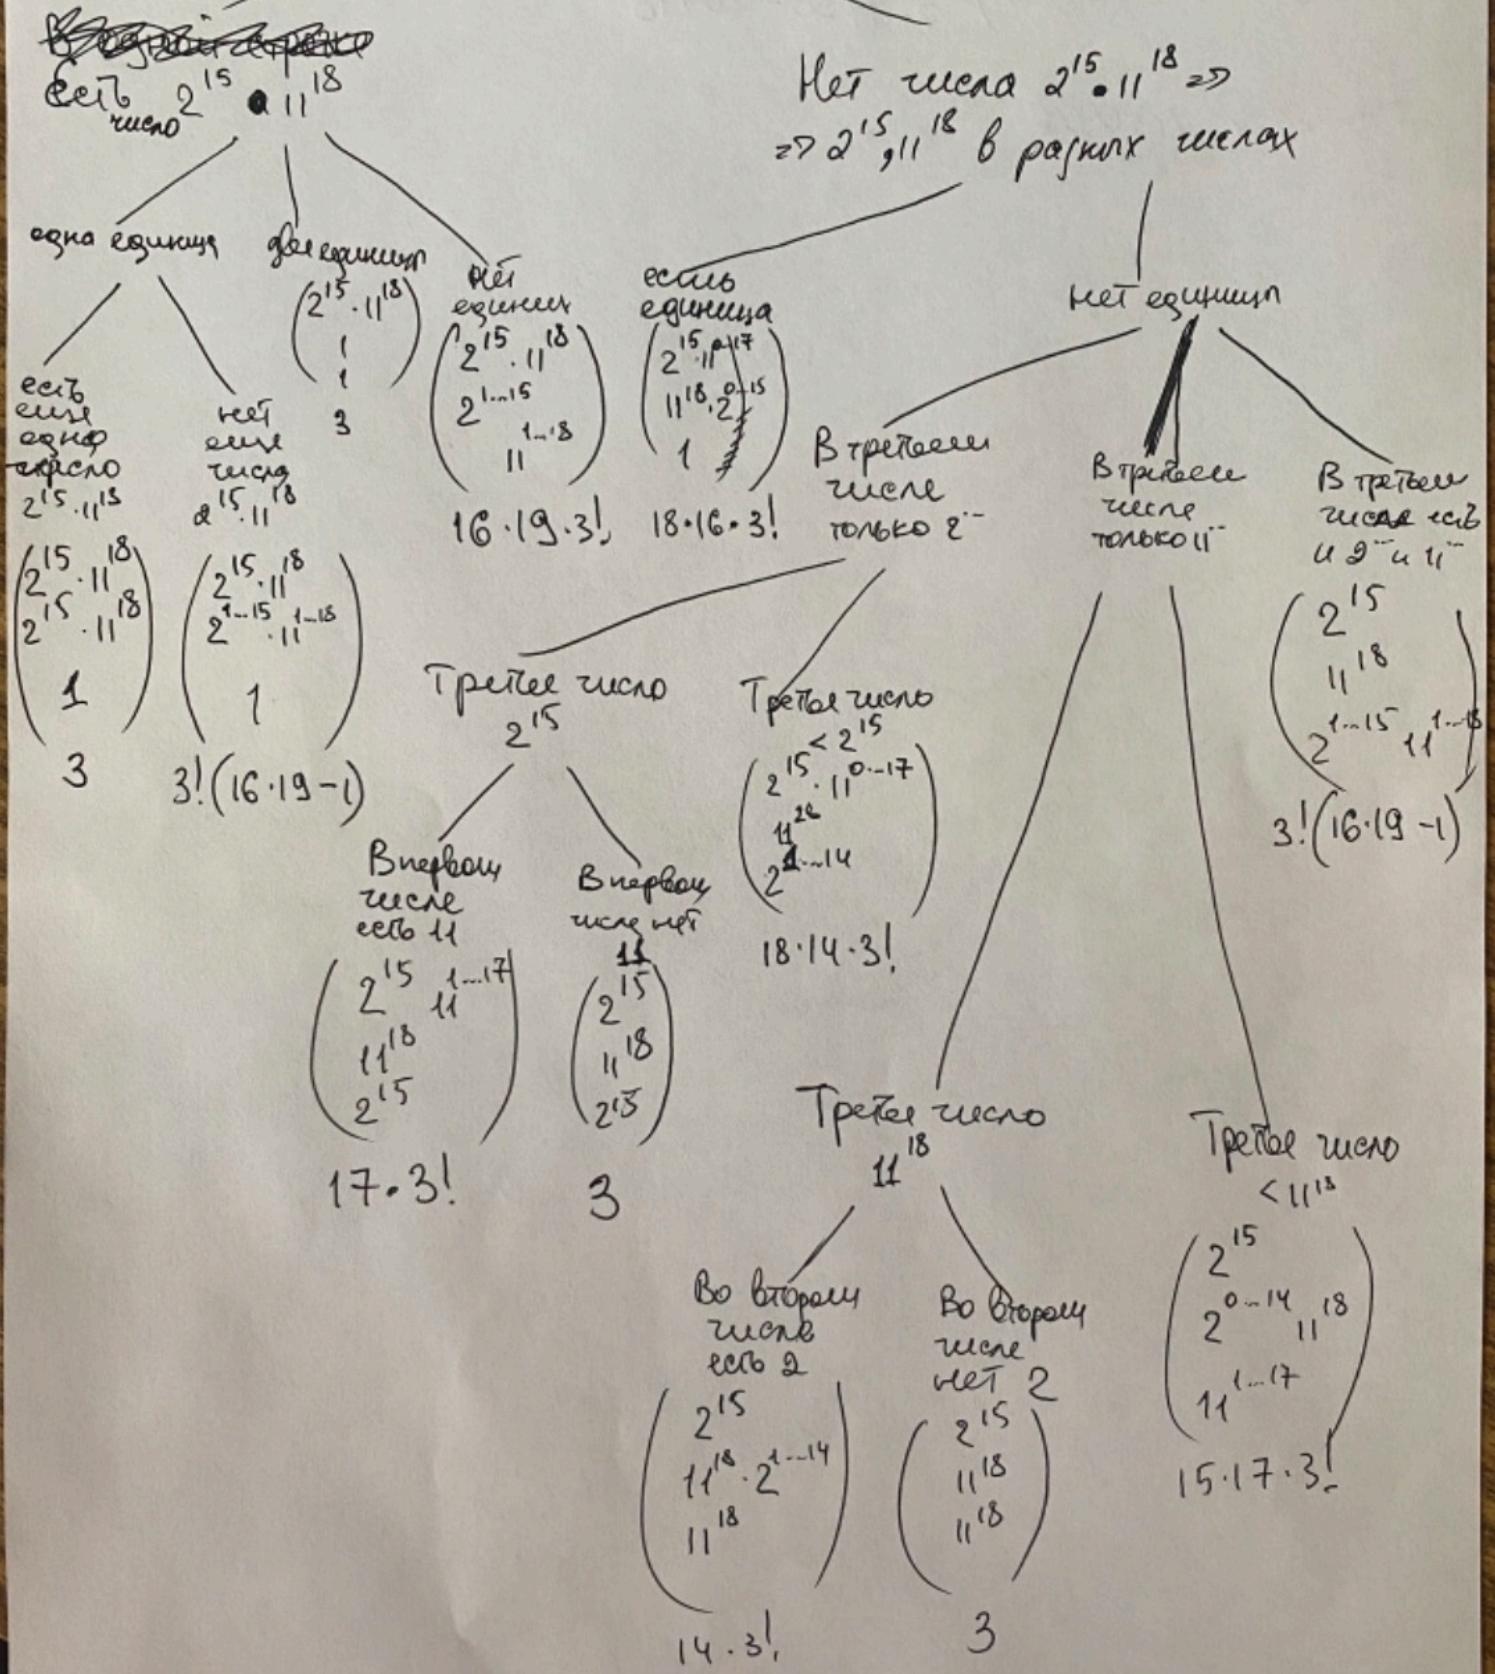 есть 2^15 · 11^18
число
одна единица
две единицы
(2^15 · 11^18
1
1)
3
нет
единиц
(2^15 · 11^18
2^1...15
11^1...18)
16·19·3!
есть
еще
одно
число
2^15 · 11^18
(2^15 · 11^18
2^15 · 11^18
1)
3
нет
еще
числа
2^15 · 11^18
(2^15 · 11^18
2^1...15 · 11^1...18
1)
3!(16·19-1)
Нет числа 2^15 · 11^18 =>
=> 2^15, 11^18 в разных числах
есть
единица
(2^15 · 11^0...17
11^18 · 2^0...15
1)
18·16·3!
нет единицы
В третьем
числе
только 2^...
Третье число
2^15
В первом
числе
есть 11
(2^15 11^1...17
11^18
2^15)
17·3!
В первом
числе нет
11
(2^15
11^18
2^15)
3
Третье число
< 2^15
(2^15 · 11^0...17
2^1...14)
18·14·3!
В третьем
числе
только 11^...
Третье число
11^18
Во втором
числе
есть 2
(2^15
11^18 · 2^1...14
11^18)
14·3!
Во втором
числе
нет 2
(2^15
11^18
11^18)
3
Третье число
< 11^18
(2^15
2^0...14 11^18
11^1...17)
15·17·3!
В третьем
числе есть
и 2^... и 11^...
(2^15
11^18
2^1...15 11^1...18)
3!(16·19-1)